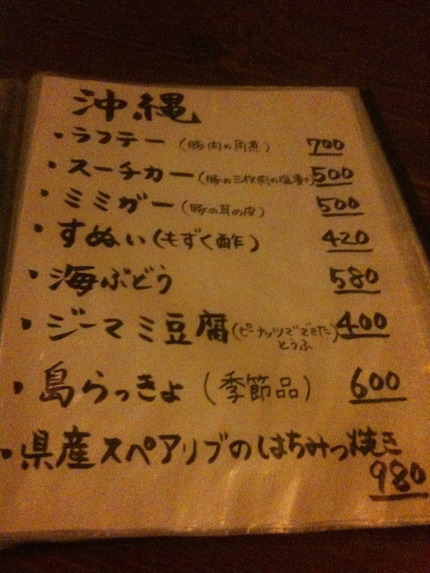 沖縄
・ラフテー (豚肉の角煮) 700
・スーチカー (豚の三枚肉の塩漬け) 500
・ミミガー (豚の耳の皮) 500
・すぬい (もずく酢) 420
・海ぶどう 580
・ジーマミ豆腐 (ピーナッツでできたとうふ) 400
・島らっきょ (季節品) 600
・県産スペアリブのはちみつ焼き
980